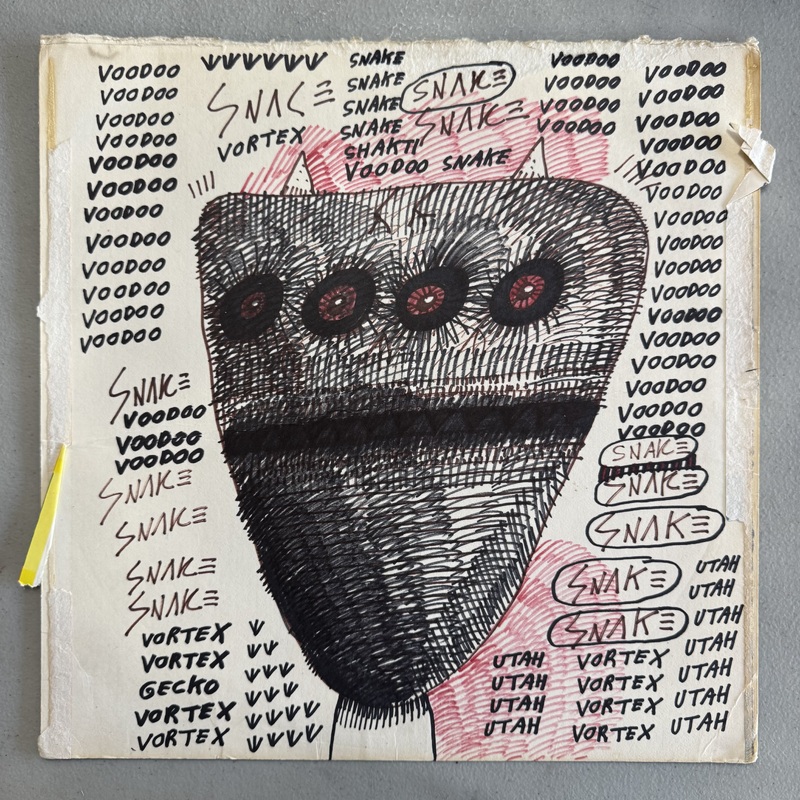 VOODOO
VOODOO
VOODOO
VOODOO
VOODOO
VOODOO
VOODOO
VOODOO
VOODOO
VOODOO
VOODOO
VOODOO
SNAKE
VOODOO
VOODOO
VOODOO
SNAKE
SNAKE
SNAKE
SNAKE
VORTEX
VORTEX
GECKO
VORTEX
VORTEX
SNAKE
VORTEX
SNAKE
SNAKE
SNAKE
SNAKE
SNAKE
SNAKE
SHAKTI
VOODOO SNAKE
VOODOO
VOODOO
VOODOO
VOODOO
VOODOO
VOODOO
VOODOO
VOODOO
VOODOO
VOODOO
VOODOO
VOODOO
VOODOO
VOODOO
VOODOO
VOODOO
VOODOO
VOODOO
VOODOO
VOODOO
SNAKE
SNAKE
SNAKE
SNAKE
SNAKE
UTAH
UTAH
UTAH
UTAH
VORTEX
VORTEX
VORTEX
VORTEX
UTAH
UTAH
UTAH
UTAH
UTAH
UTAH
UTAH